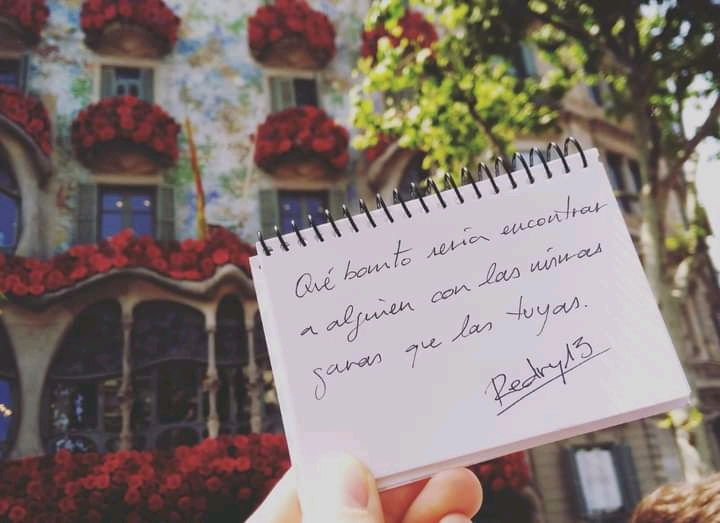 Qué bonito sería encontrar
a alguien con las mismas
ganas que las tuyas.
Redry13